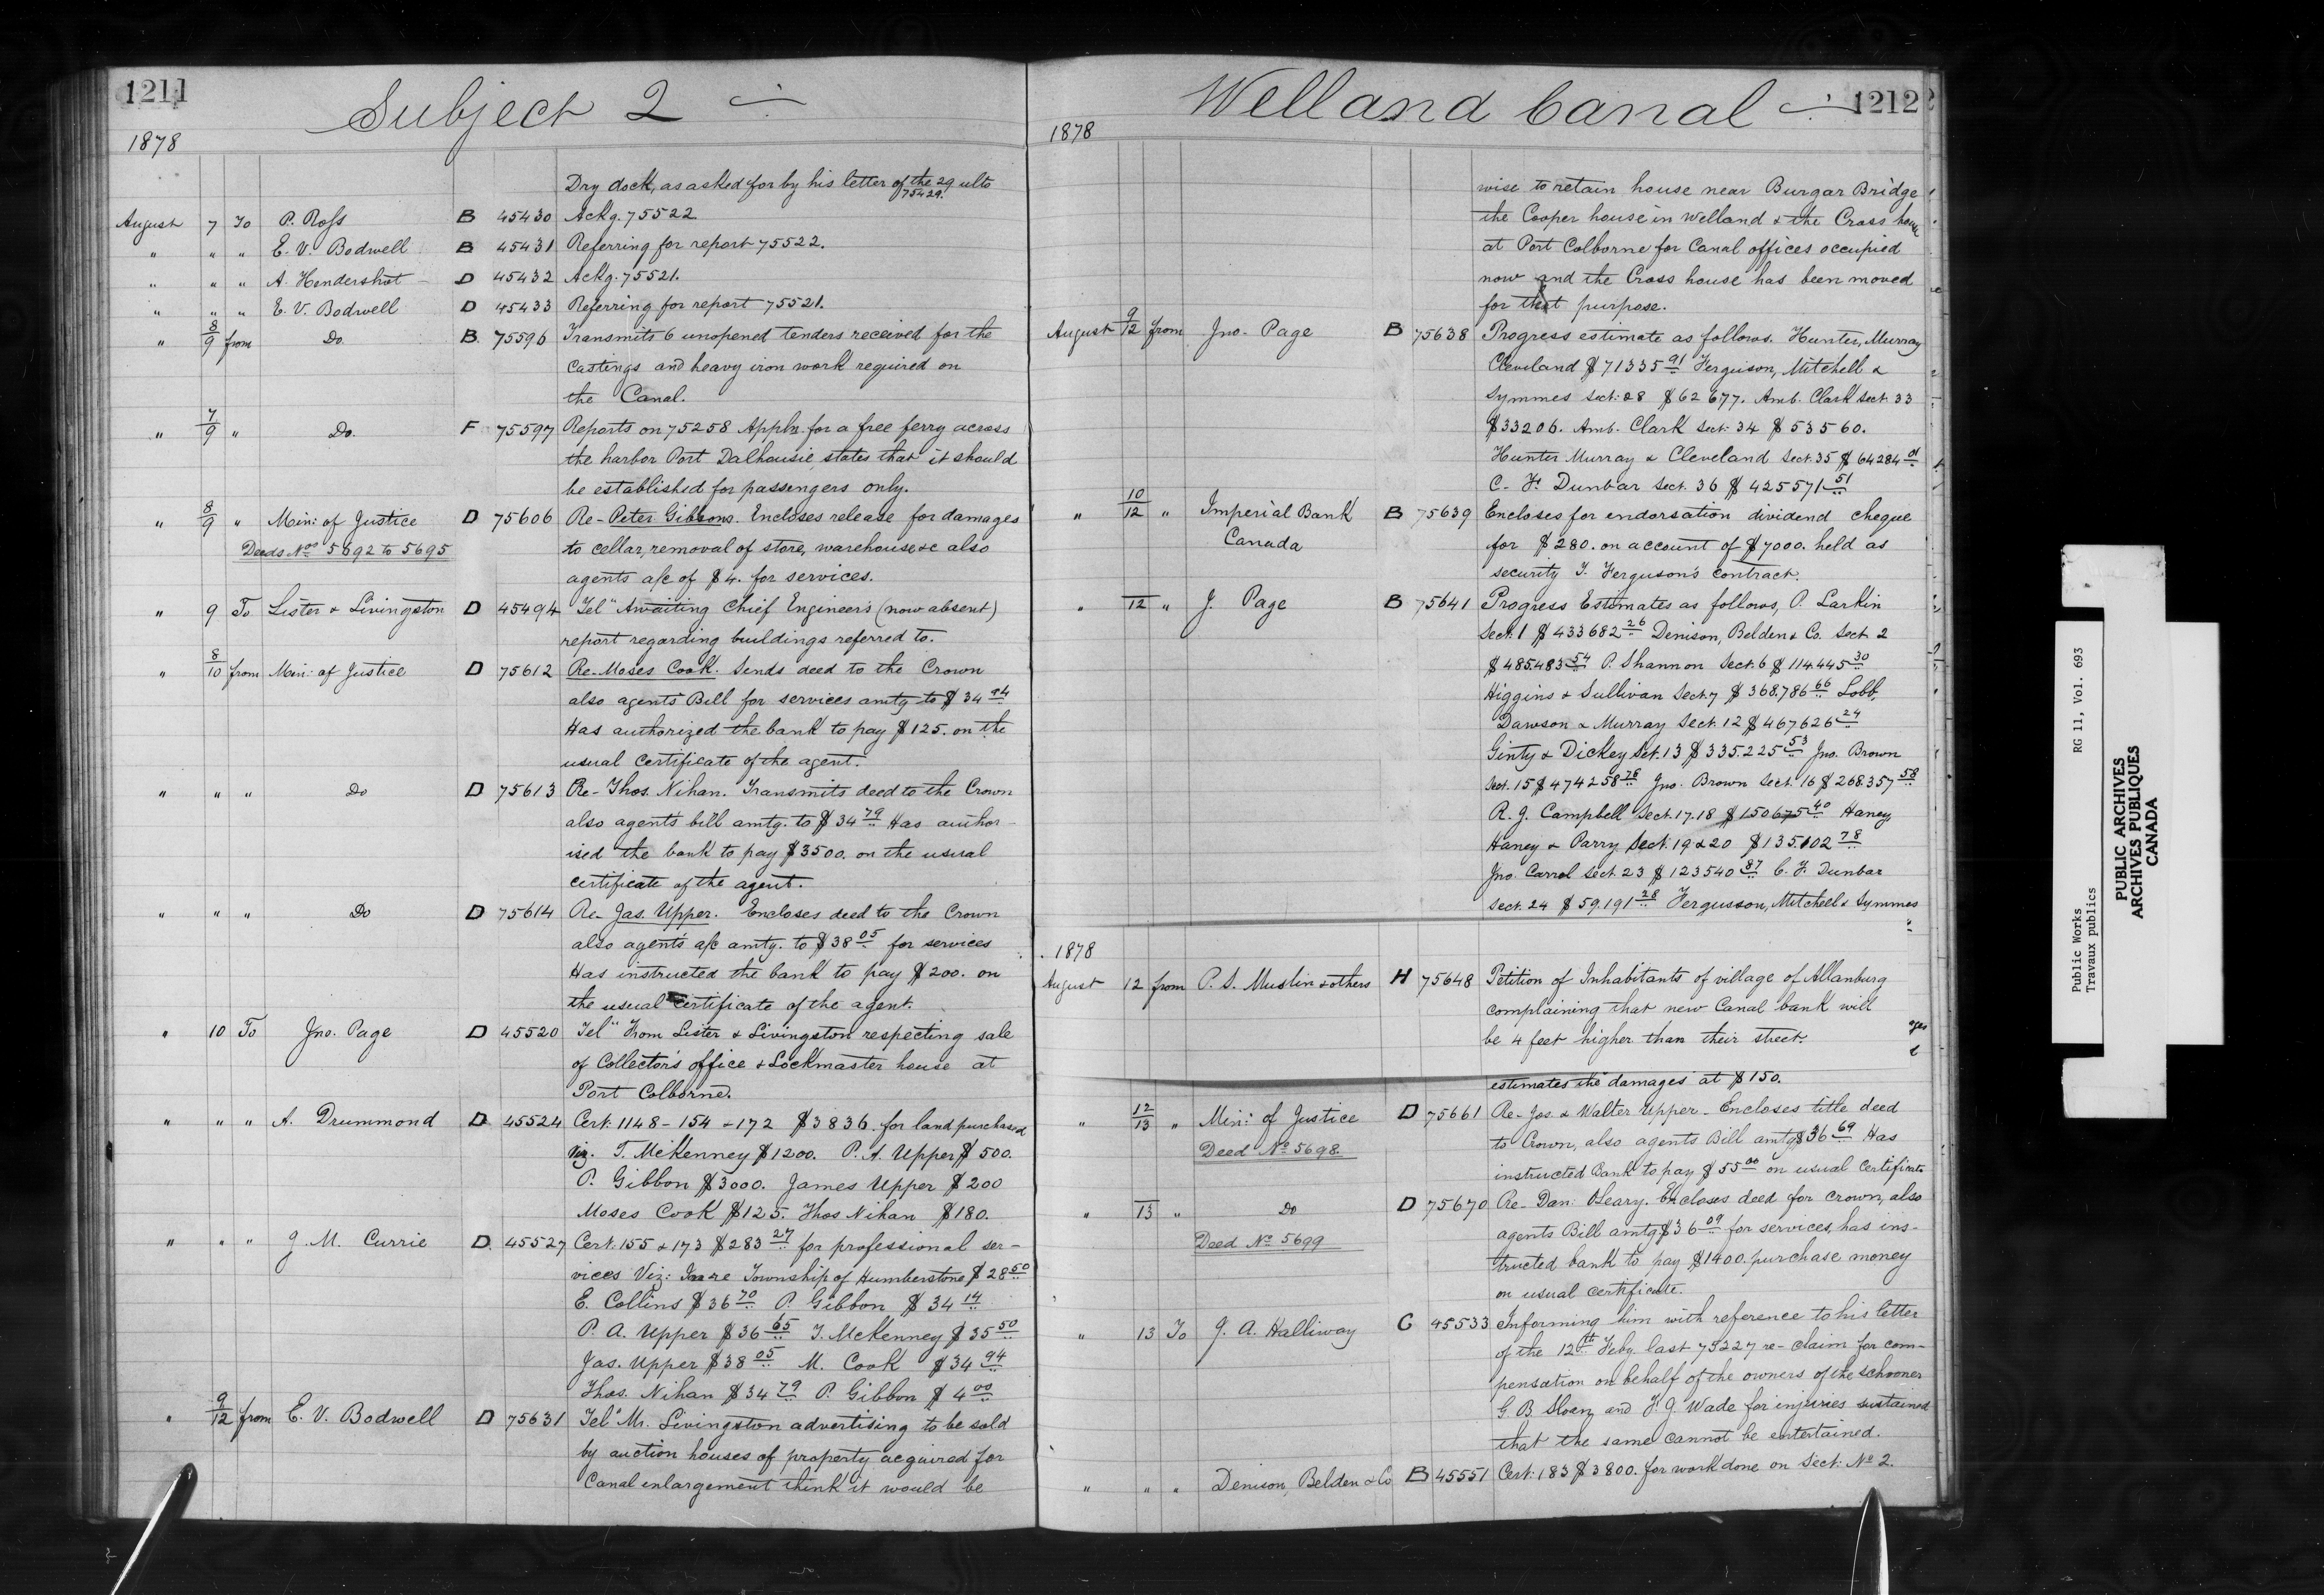 1211
Subject 2
1878
Dry dock, as asked for by his letter of the 29 ulto
75429.
August 7 To P. Ross B 45430 Ackg. 75522
" " " E. V. Bodwell B 45431 Referring for report 75522.
" " " A. Hendershot D 45432 Ackg. 75521.
" " " E. V. Bodwell D 45433 Referring for report 75521.
" 8/9 from Do B. 75596 Transmits 6 unopened tenders received for the
castings and heavy iron work required on
the Canal.
" 7/9 " Do. F 75597 Reports on 75258 Appln. for a free ferry across
the harbor Port Dalhousie, states that it should
be established for passengers only.
" 8/9 " Min: of Justice D 75606 Re- Peter Gibbons. Encloses release for damages
Deeds Nos 5692 to 5695 to cellar, removal of store, warehouse &c also
agents a/c of $4. for services.
" 9 To Lister & Livingston D 45494 Tel" Awaiting Chief Engineer's (now absent)
report regarding buildings referred to.
" 8/10 from Min: of Justice D 75612 Re- Moses Cook. Sends deed to the Crown
also agents Bill for services amtg to $34 94
Has authorized the bank to pay $125. on the
usual certificate of the agent.
" " " Do D 75613 Re- Thos. Nihan. Transmits deed to the Crown
also agents bill amtg. to $34 79 Has author-
ised the bank to pay $3500. on the usual
certificate of the agent.
" " " Do D 75614 Re- Jas. Upper. Encloses deed to the Crown
also agents a/c amtg. to $38 05 for services
Has instructed the bank to pay $200. on
the usual certificate of the agent
" 10 To Jno. Page D 45520 Tel" From Lister & Livingston respecting sale
of Collector's office & Lockmaster house at
Port Colborne.
" " " A. Drummond D 45524 Cert. 1148 - 154 & 172 $3836. for land purchased
Viz. T. McKenney $1200. P. A. Upper $500.
P. Gibbon $3000. James Upper $200
Moses Cook $125. Thos Nihan $180.
" " " J. M. Currie D. 45527 Cert. 155 & 173 $283 27 for professional ser-
vices Viz: In re Township of Humberstone $28 50
E. Collins $36 70 P. Gibbon $34 14
P. A. Upper $36 65 T. McKenney $35 50
Jas. Upper $38 05 M. Cook $34 94
Thos. Nihan $34 79 P. Gibbon $4 00
" 9/12 from E. V. Bodwell D 75631 Tel" Mr. Livingston advertising to be sold
by auction houses of property acquired for
Canal enlargement think it would be
Welland Canal
1212
1878
wise to retain house near Burgar Bridge
the Cooper house in Welland & the Cross house
at Port Colborne for Canal offices occupied
now and the Cross house has been moved
for that purpose.
August 9/12 from Jno. Page B 75638 Progress estimate as follows. Hunter, Murray
Cleveland $71335 91 Ferguson, Mitchell &
Symmes Sect: 28 $62677. Amb. Clark Sect. 33
$33206. Amb. Clark Sect. 34 $53560.
Hunter Murray & Cleveland Sect. 35 $64284 01
C. F. Dunbar Sect. 36 $425571 51
" 10/12 " Imperial Bank B 75639 Encloses for endorsation dividend cheque
Canada for $280. on account of $7000. held as
security T. Ferguson's contract.
" 12 " J. Page B 75641 Progress Estimates as follows, P. Larkin
Sect. 1 $433682 26 Denison, Belden & Co. Sect 2
$485.483 54 P. Shannon Sect. 6 $114.445 30
Higgins & Sullivan Sect. 7 $368.786 66 Lobb,
Dawson & Murray Sect. 12 $467626 24
Ginty & Dickey Sect. 13 $335.225 53 Jno. Brown
Sect. 15 $474258 78 Jno. Brown Sect. 16 $268.357 58
R. J. Campbell Sect. 17.18 $150675 40 Haney
Haney & Parry Sect. 19 & 20 $135.102 78
Jno. Carrol Sect. 23 $123540 87 C. F. Dunbar
Sect. 24 $59.191 28 Fergusson, Mitchell & Symmes
1878
August 12 from P. S. Muslin & others H 75648 Petition of Inhabitants of village of Allanburg
complaining that new Canal bank will
be 4 feet higher than their street.
estimates the damages at $150.
" 12/13 " Min: of Justice D 75661 Re- Jos. & Walter Upper - Encloses title deed
Deed No 5698 to Crown, also agents Bill amtg $36 69 Has
instructed Bank to pay $55 00 on usual certificate
" 13 " Do D 75670 Re- Dan: OLeary. Encloses deed for crown, also
Deed No 5699 agents Bill amtg $36 09 for services, has ins-
tructed bank to pay $1400. purchase money
on usual certificate.
" 13 To J. A. Halliway C 45533 Informing him with reference to his letter
of the 12th Feby. last 75227 re- claim for com-
pensation on behalf of the owners of the schooner
G. B Sloan, and F. J. Wade for injuries sustained
that the same cannot be entertained.
" " " Denison, Belden & Co B 45551 Cert: 183 $3800. for work done on Sect: No 2.
Public Works RG 11, Vol. 693
Travaux publics
PUBLIC ARCHIVES
ARCHIVES PUBLIQUES
CANADA